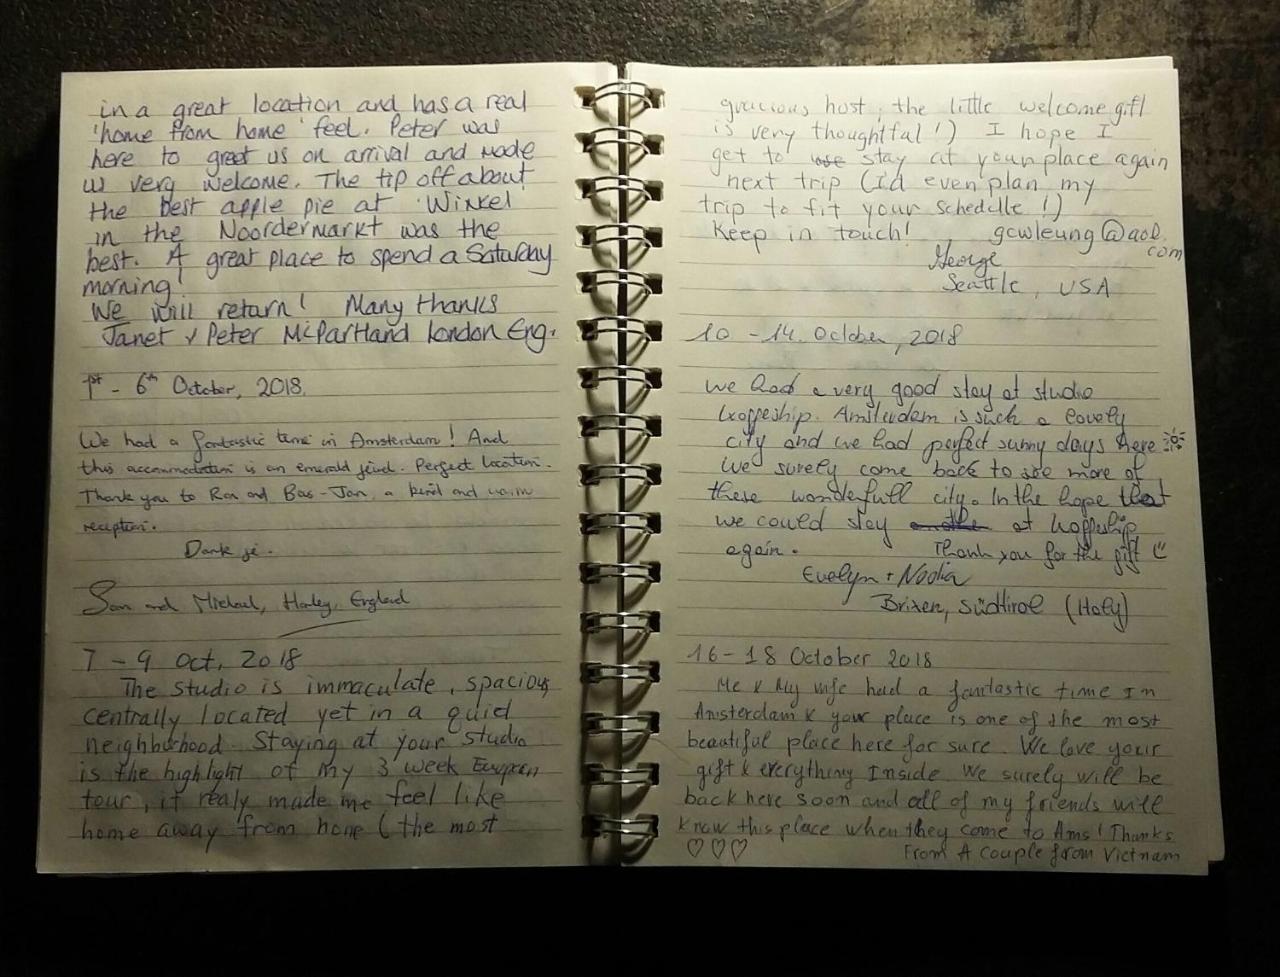 in a great location and has a real
'home from home' feel. Peter was
here to greet us on arrival and made
us very welcome. The tip off about
the best apple pie at Winkel
in the Noordermarkt was the
best. A great place to spend a Saturday
morning!
We will return! Many thanks
Janet & Peter McPartland London Eng.
1st - 6th October, 2018.
We had a fantastic time in Amsterdam! And
this accommodation is an emerald jewel. Perfect location.
Thank you to Ron and Bas-Jan, a kind and warm
reception.
Dank je.
Sam and Michael, Henley, England
7 - 9 Oct, 2018
The studio is immaculate, spacious
centrally located yet in a quid
neighborhood. Staying at your studio
is the highlight of my 3 week European
tour, it realy made me feel like
home away from home (the most
gracious host, the little welcome gift
is very thoughtful!) I hope I
get to stay at your place again
next trip (I'd even plan my
trip to fit your schedule!)
Keep in touch! gcwleung@aol.
com
George
Seattle, USA
10 - 14. October, 2018
we had a very good stay at studio
Amsterdam is such a lovely
city and we had perfect sunny days here
We surely come back to see more of
these wonderfull city. In the hope that
we could stay at
again. Thank you for the gift
Evelyn + Nadia
Brixen, Südtirol (Italy)
16 - 18 October 2018
Me & My wife had a fantastic time In
Amsterdam & your place is one of the most
beautiful place here for sure. We love your
gift & everything Inside. We surely will be
back here soon and all of my friends will
know this place when they come to Ams! Thanks
♡♡♡ From A Couple from Vietnam